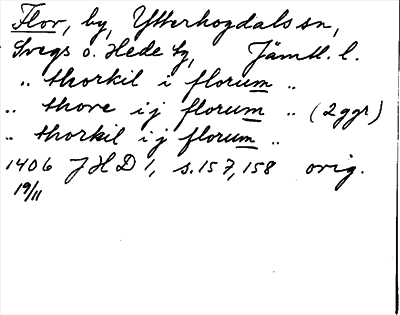 Flor, by, Ytterhogdals sn,
Svegs o. Hede tg, Jämtl. l.
" thorkil i florum "
" thore ij florum " (2 ggr)
" thorkil ij florum "
1406 JHD 1, s. 157, 158 orig.
19/11